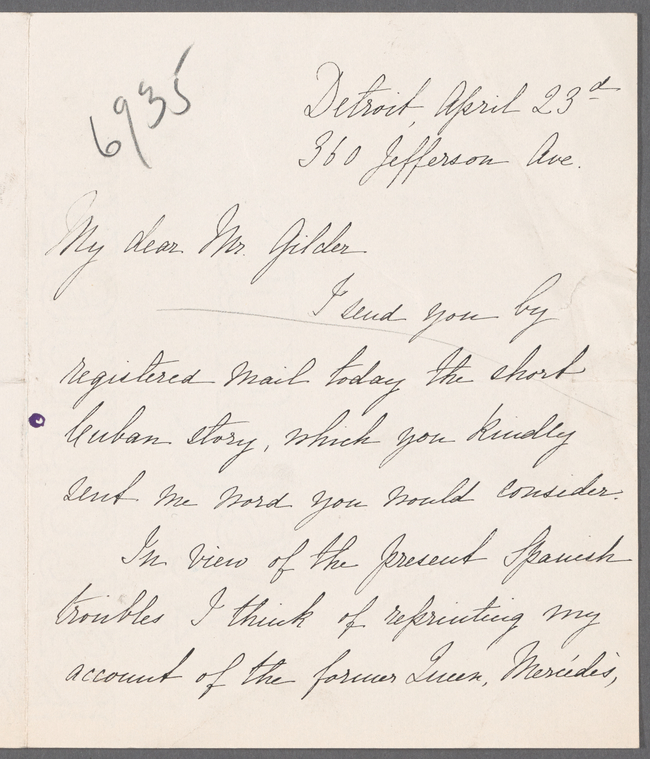 6935
Detroit, April 23d
360 Jefferson Ave.
My dear Mr. Gilder
I send you by
registered mail today the short
Cuban story, which you kindly
sent me word you would consider.
In view of the present Spanish
troubles I think of reprinting my
account of the former Queen, Mercédès,